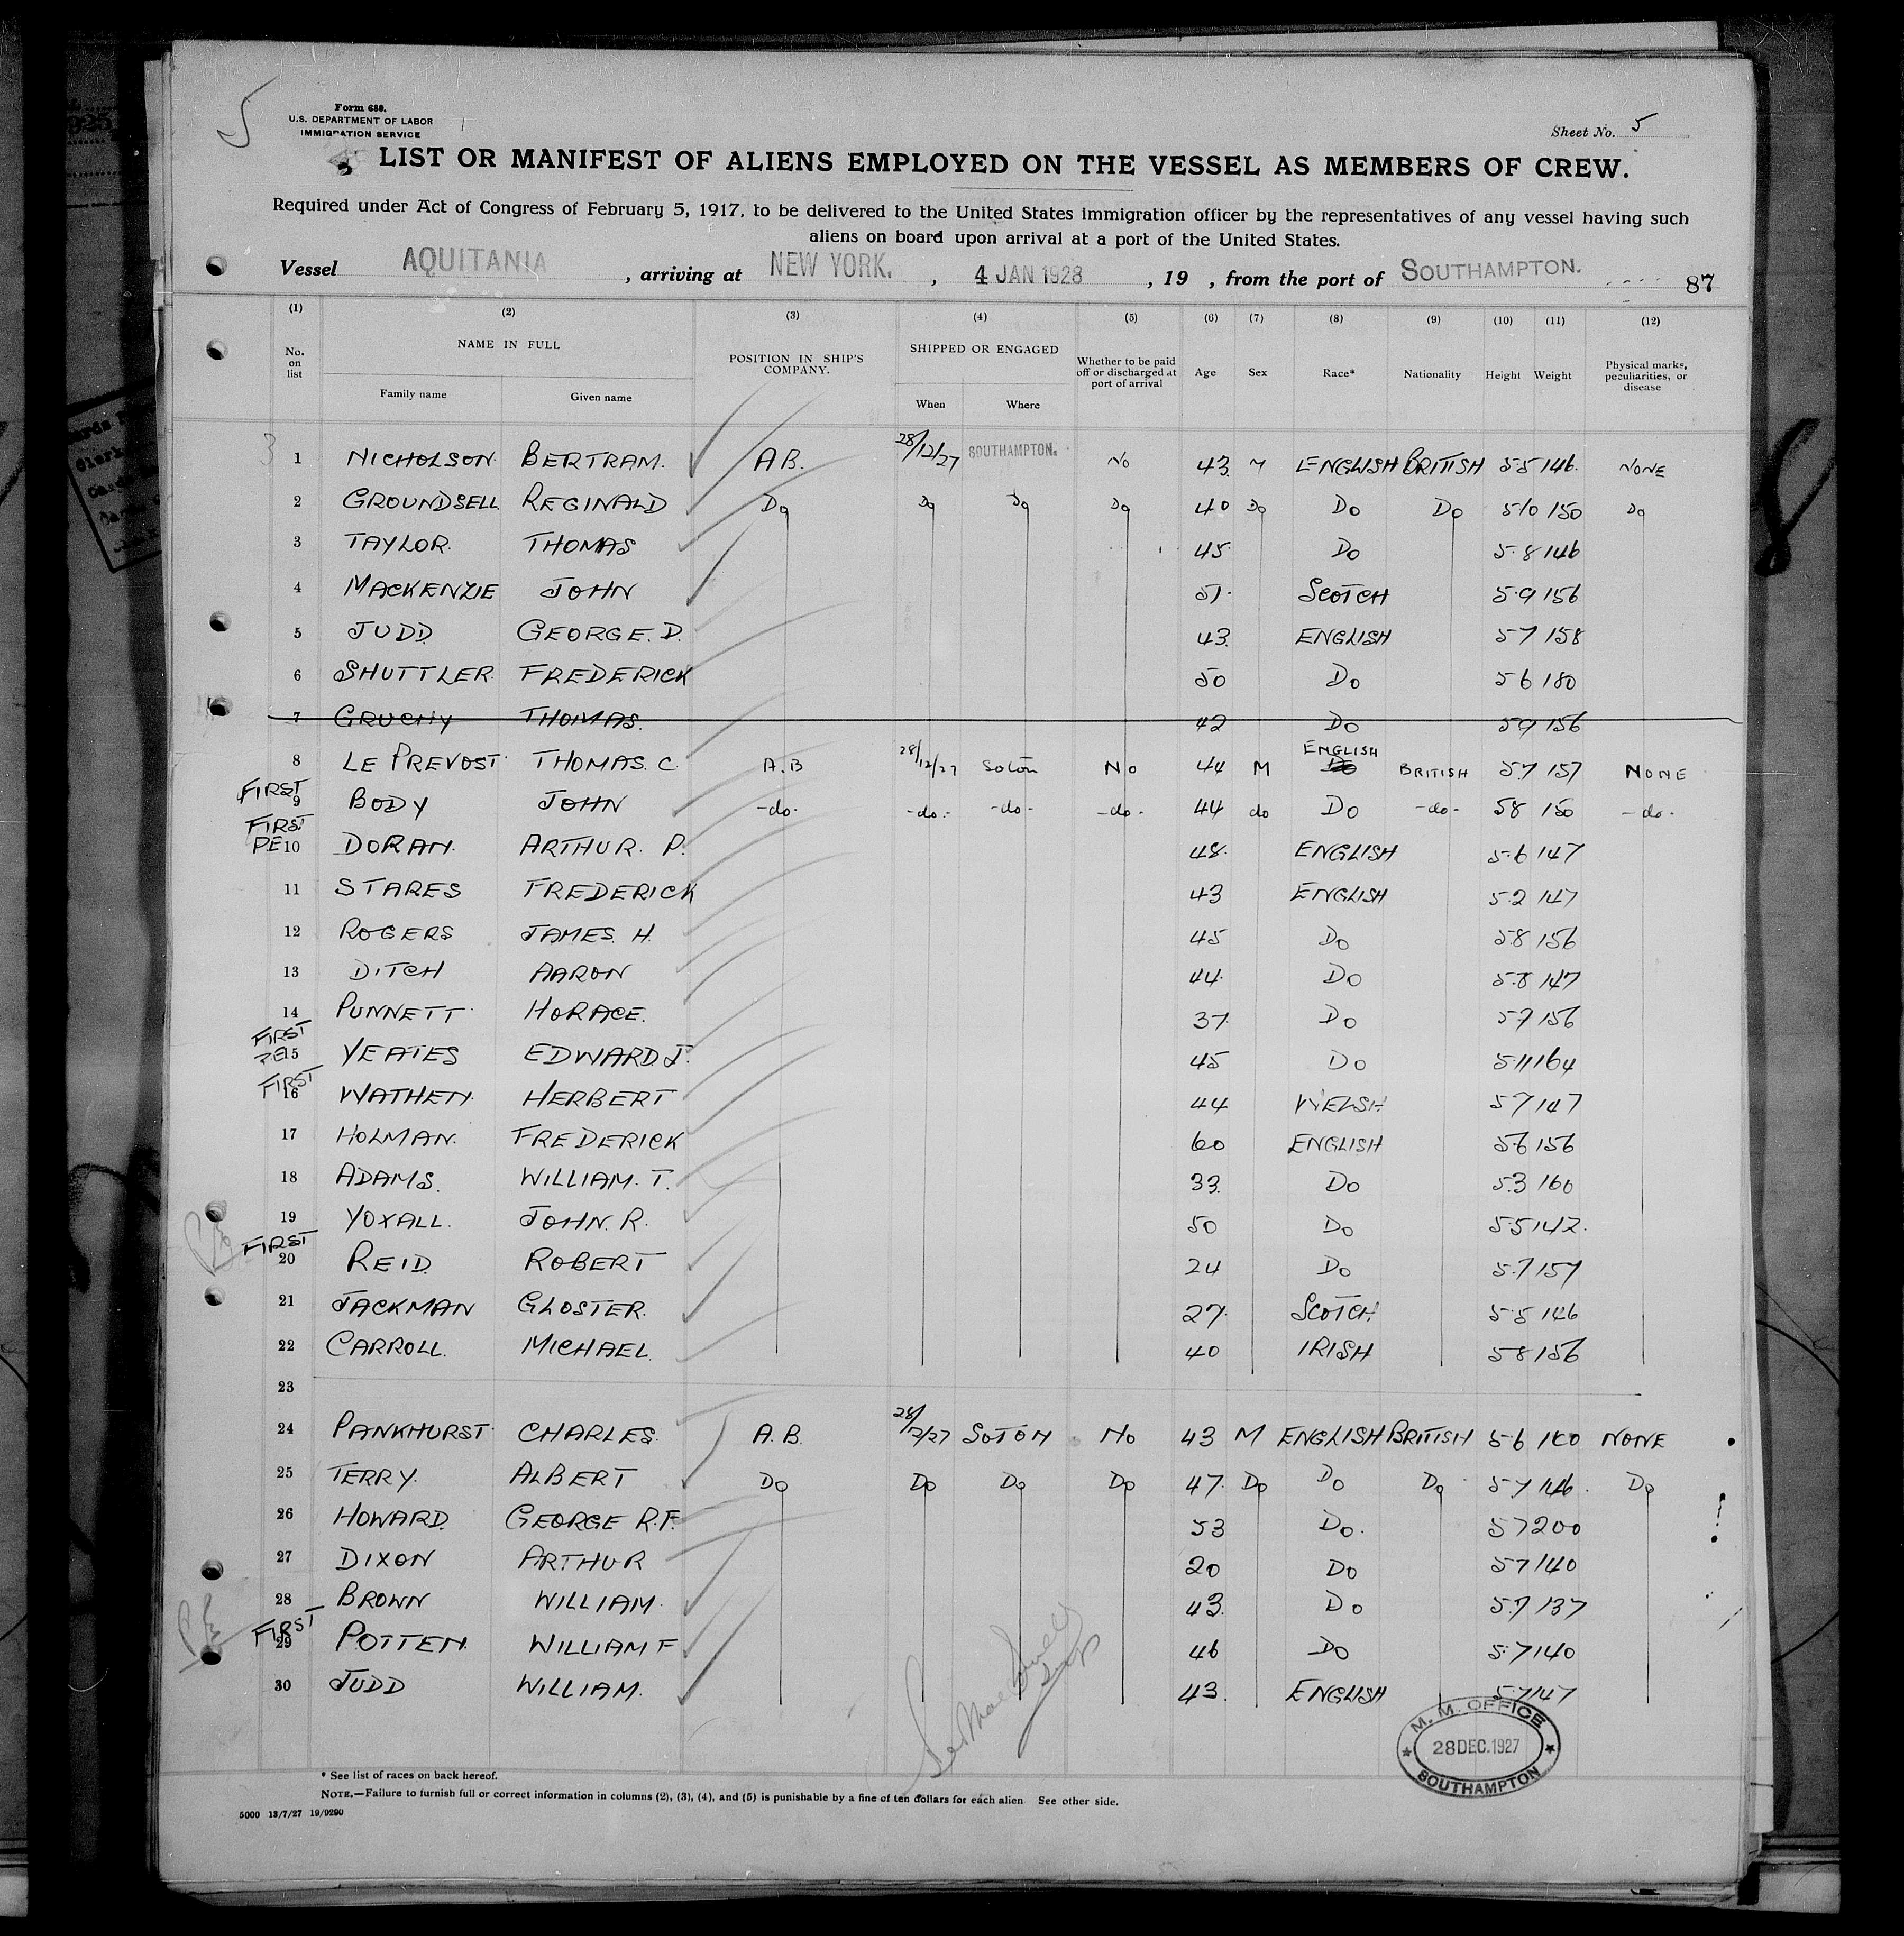 5
Form 680.
U.S. DEPARTMENT OF LABOR
IMMIGRATION SERVICE
Sheet No. 5
LIST OR MANIFEST OF ALIENS EMPLOYED ON THE VESSEL AS MEMBERS OF CREW.
Required under Act of Congress of February 5, 1917, to be delivered to the United States immigration officer by the representatives of any vessel having such
aliens on board upon arrival at a port of the United States.
Vessel AQUITANIA , arriving at NEW YORK. , 4 JAN 1928 , 19 , from the port of SOUTHAMPTON. 87
(1) (2) (3) (4) (5) (6) (7) (8) (9) (10) (11) (12)
No. on list NAME IN FULL Family name Given name POSITION IN SHIP'S COMPANY. SHIPPED OR ENGAGED When Where Whether to be paid off or discharged at port of arrival Age Sex Race* Nationality Height Weight Physical marks, peculiarities, or disease
3 1 NICHOLSON BERTRAM. AB. 28/12/27 SOUTHAMPTON. No 43 M ENGLISH BRITISH 5 5 146. NONE
2 GROUNDSELL REGINALD Do Do Do Do 40 Do Do Do 5 10 150 Do
3 TAYLOR. THOMAS 45 Do 5.8 146
4 MACKENZIE JOHN 51. SCOTCH 5.9 156
5 JUDD. GEORGE. D. 43. ENGLISH 5 7 158
6 SHUTTLER. FREDERICK 50 Do 5 6 180
7 GRUCHY THOMAS. 42 Do 5 9 156
8 LE PREVOST THOMAS. C A.B 28/12/27 Soton No 44 M ENGLISH Do BRITISH 5.7 157 NONE
FIRST 9 BODY JOHN -do- -do- -do- -do- 44 do Do -do- 5 8 150 -do-
FIRST P.E 10 DORAN. ARTHUR. P. 48. ENGLISH 5.6 147
11 STARES FREDERICK 43 ENGLISH 5.2 147
12 ROGERS JAMES. H. 45 Do 5.8 156
13 DITCH AARON 44. Do 5.8 147
14 PUNNETT HORACE. 37 Do 5.7 156
FIRST P.E 15 YEATES EDWARD J. 45 Do 5.11 164
FIRST 16 WATHEN. HERBERT 44 WELSH 5 7 147
17 HOLMAN. FREDERICK 60 ENGLISH 5 6 156
18 ADAMS. WILLIAM. T. 33. Do 5.3 160
19 YOXALL. JOHN. R. 50 Do 5 5 142.
FIRST 20 REID. ROBERT 24 Do 5.7 157
21 JACKMAN GLOSTER. 27. SCOTCH 5.5 146
22 CARROLL. MICHAEL. 40 IRISH 5 8 156
23
24 PANKHURST CHARLES. A.B. 28/12/27 SOTON No 43 M ENGLISH BRITISH 5 6 160 NONE
25 TERRY. ALBERT Do Do Do Do 47. Do Do Do 5 7 146. Do
26 HOWARD. GEORGE R.F. 53 Do. 5 7 200
27 DIXON ARTHUR 20 Do 5 7 140
28 BROWN WILLIAM. 43. Do 5.7 137
FIRST 29 POTTEN. WILLIAM F 46 Do 5.7 140
30 JUDD WILLIAM. 43. ENGLISH 5 7 147
M. M. OFFICE
28 DEC. 1927
SOUTHAMPTON
* See list of races on back hereof.
NOTE.—Failure to furnish full or correct information in columns (2), (3), (4), and (5) is punishable by a fine of ten dollars for each alien See other side.
5000 13/7/27 19/9290